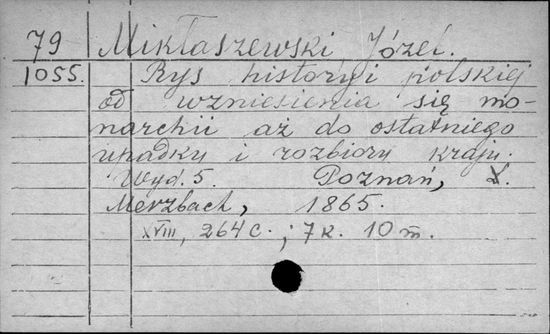 79 Mikłaszewski Józef.
1055. Rys historyi polskiej
od wzniesienia się mo-
narchii aż do ostatniego
upadku i rozbioru kraju.
Wyd. 5. Poznań, L.
Merzbach, 1865.
XVIII, 264 c.; 7 k. 10 m.